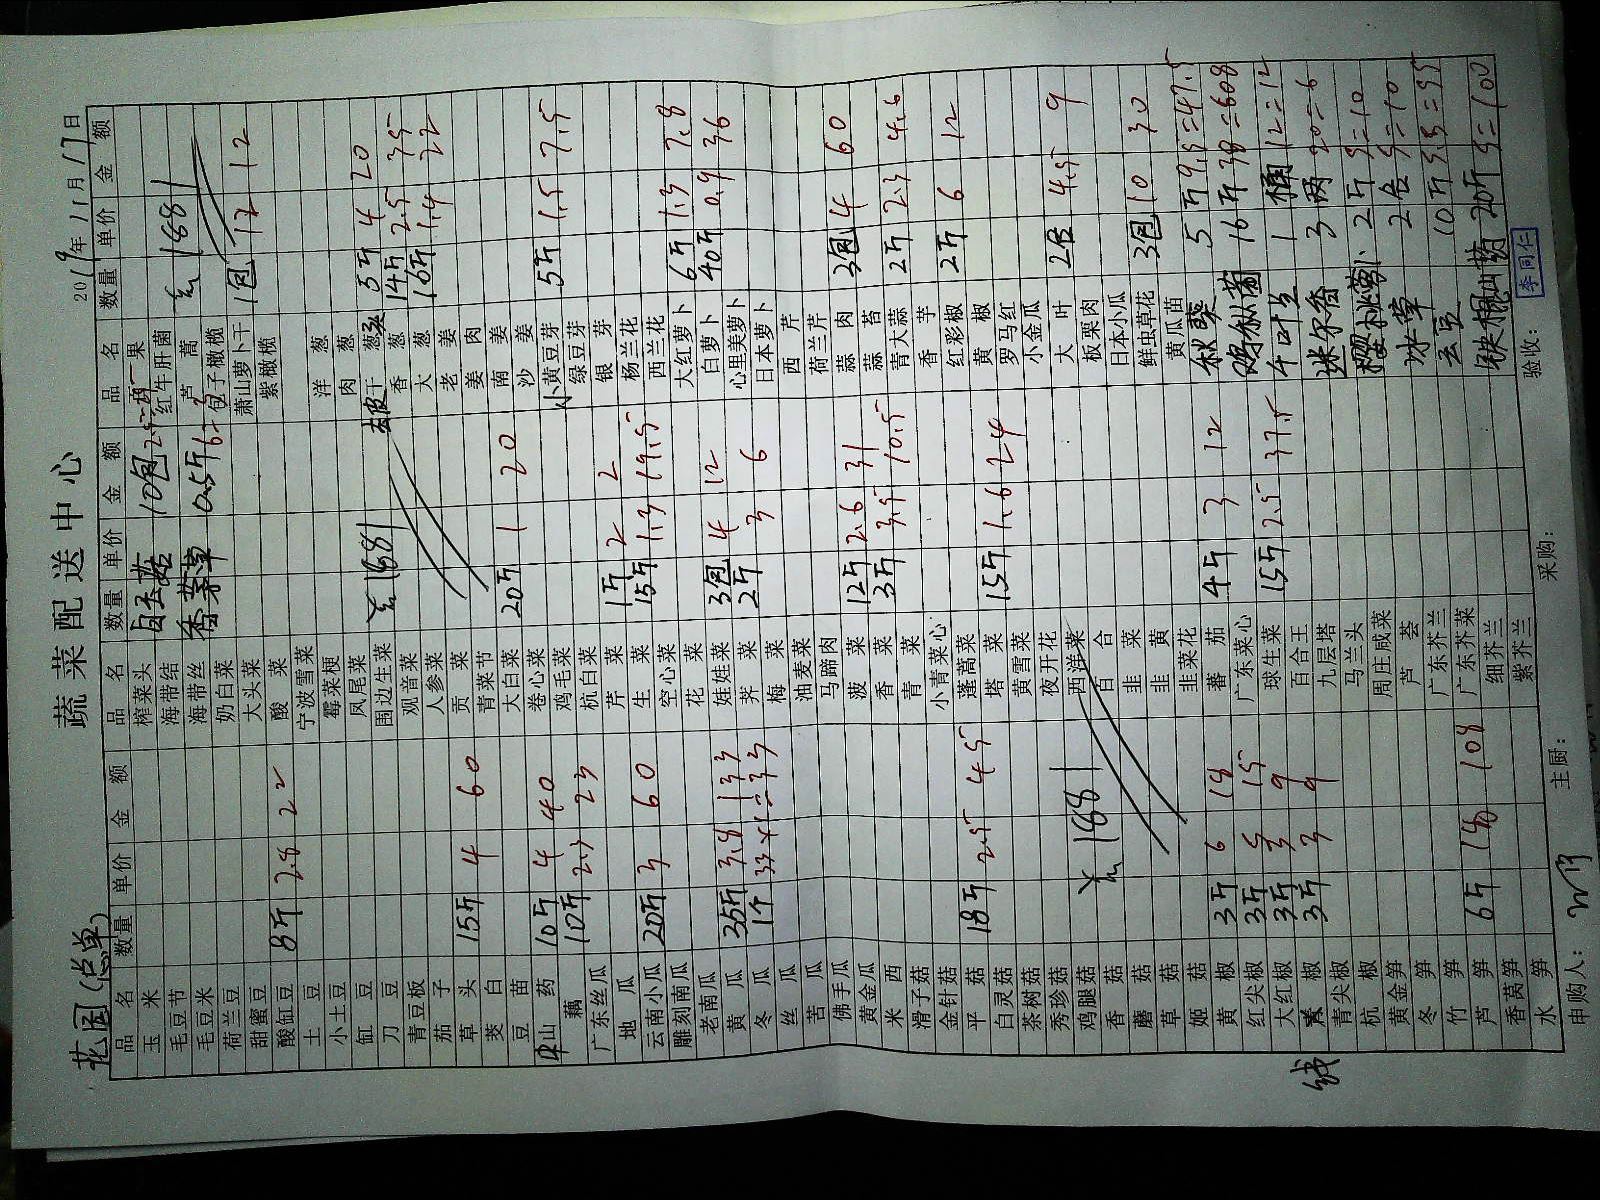 花园(总单)
蔬菜配送中心
2019年11月17日
品名 数量 单价 金额
玉米
毛豆节
毛豆米
荷兰豆
甜蜜豆
酸缸豆 8斤 2.8 22
土豆
小土豆
缸豆
刀豆
青豆板
茄子
草头 15斤 4 60
茭白
豆苗
山药 10斤 4 40
藕 10斤 2.3 23
广东丝瓜
地瓜
云南小瓜 20斤 3 60
雕刻南瓜
老南瓜
黄瓜 35斤 3.8 133
冬瓜 1个 33
丝瓜
苦瓜
佛手瓜
黄金瓜
米西
滑子菇
金针菇
平菇 18斤 2.5 45
白灵菇
茶树菇
秀珍菇
鸡腿菇 1881
香菇
蘑菇
草菇
姬菇
黄椒 3斤 6 18
红尖椒 3斤 5 15
大红椒 3斤 3 9
线椒 3斤 3 9
青尖椒
杭椒
黄金笋
冬笋
竹笋
芦笋 6斤 18 108
香莴笋
水笋
品名 数量 单价 金额
榨菜头 白玉菇 10包 25
海带结
海带丝 香茅草 0.5斤 6
奶白菜
大头菜
酸菜
宁波雪菜
霉菜梗
凤尾菜
围边生菜 1881
观音菜
人参菜
贡菜
青菜节
大白菜 20斤 1 20
卷心菜
鸡毛菜
杭白菜
芹菜 1斤 2 2
生菜 15斤 1.3 19.5
空心菜
花菜
娃娃菜 3包 4 12
荠菜 2斤 3 6
梅菜
油麦菜
马蹄肉
菠菜 12斤 2.6 31
香菜 3斤 3.5 10.5
青菜
小青菜心
蓬蒿菜
塔菜 15斤 1.6 24
黄雪菜
夜开花
西洋菜
百合
韭菜
韭黄
韭菜花
蕃茄 4斤 3 12
广东菜心
球生菜 15斤 2.5 37.5
百合王
九层塔
马兰头
周庄咸菜
芦荟
广东芥兰
广东芥菜
细芥兰
紫芥兰
品名 数量 单价 金额
红牛肝菌
芦蒿 1881
包子橄榄
萧山萝卜干 1包 12 12
紫橄榄
洋葱
肉葱
去皮干葱 5斤 4 20
香葱 14斤 2.5 35
大葱 16斤 1.4 22
老姜
姜肉
南姜
沙姜
小黄豆芽 5斤 1.5 7.5
绿豆芽
银芽
杨兰花
西兰花
大红萝卜 6斤 1.3 7.8
白萝卜 40斤 0.9 36
心里美萝卜
日本萝卜
西芹
荷兰芹
蒜肉 3包 4 60
蒜苔
青大蒜 2斤 2.3 4.6
香芋
红彩椒 2斤 6 12
黄椒
罗马红
小金瓜
大叶 2 4.5 9
板栗肉
日本小瓜
鲜虫草花 3包 10 30
黄瓜苗
秋葵 5斤 9.5=47.5
鸡枞菌 16斤 38=608
牛叶生 1桶 12=12
迷尔香 3两 20=6
樱桃萝卜 2斤 5=10
冰草 2 5=10
云豆 10斤 9.5=95
铁棍山药 20斤 5=100
申购人：
主厨：
采购：
验收：
李同仁